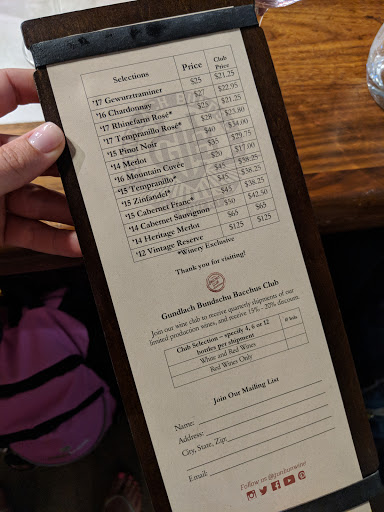 Selections Price Club Price
'17 Gewurztraminer $25 $21.25
'16 Chardonnay $27 $22.95
'17 Rhinefarm Rosé* $25 $21.25
'17 Tempranillo Rosé* $28 $23.80
'15 Pinot Noir $40 $34.00
'14 Merlot $35 $29.75
'16 Mountain Cuvée $20 $17.00
'15 Tempranillo* $45 $38.25
'15 Zinfandel* $45 $38.25
'15 Cabernet Franc* $45 $38.25
'14 Cabernet Sauvignon $50 $42.50
'14 Heritage Merlot $65 $65
'12 Vintage Reserve $125 $125
*Winery Exclusive
Thank you for visiting!
Gundlach Bundschu Bacchus Club
Join our wine club to receive quarterly shipments of our
limited production wines, and receive 15% - 20% discount.
Club Selection – specify 4, 6 or 12
bottles per shipment
White and Red Wines
Red Wines Only
Join Our Mailing List
Name:
Address:
City, State, Zip:
Email:
Follow us @gunbunwine